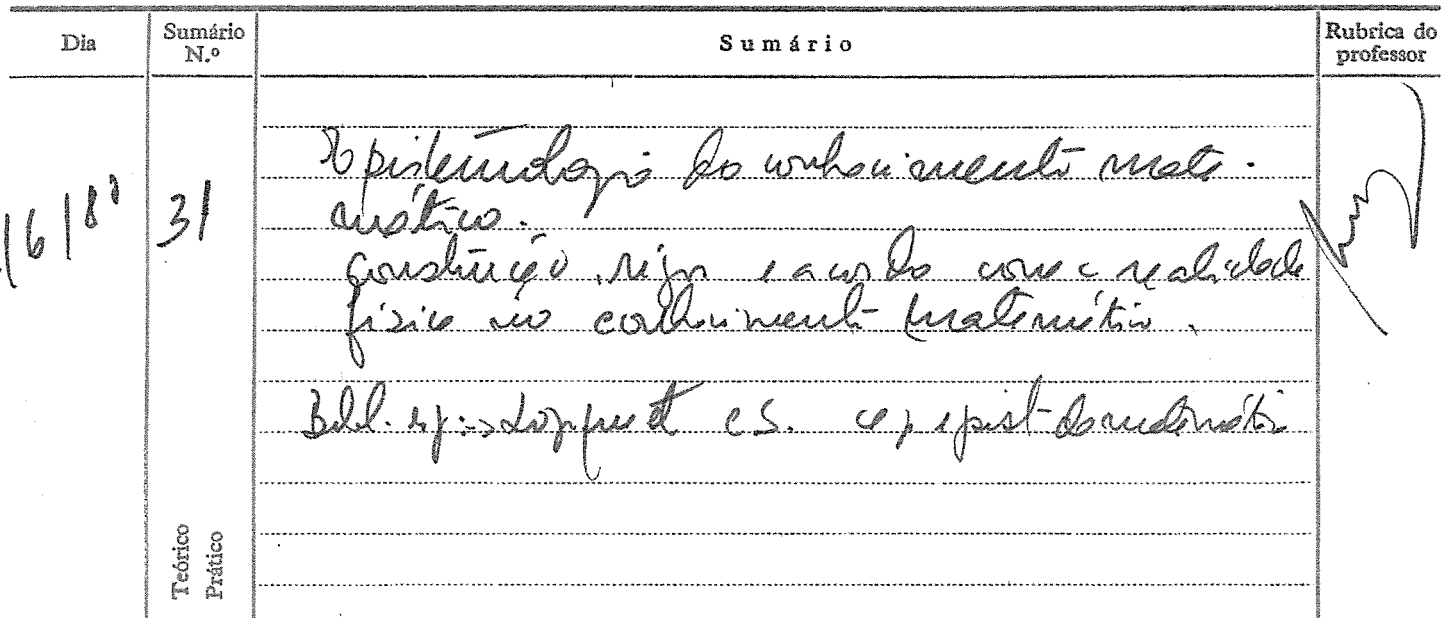 Dia
Sumário N.º
Sumário
Rubrica do professor
31
Epistemologia do conhecimento mate-
mático.
Construção, rigor e acordo com a realidade
física no conhecimento matemático.
Bibl.
epist da matemática
Teórico
Prático